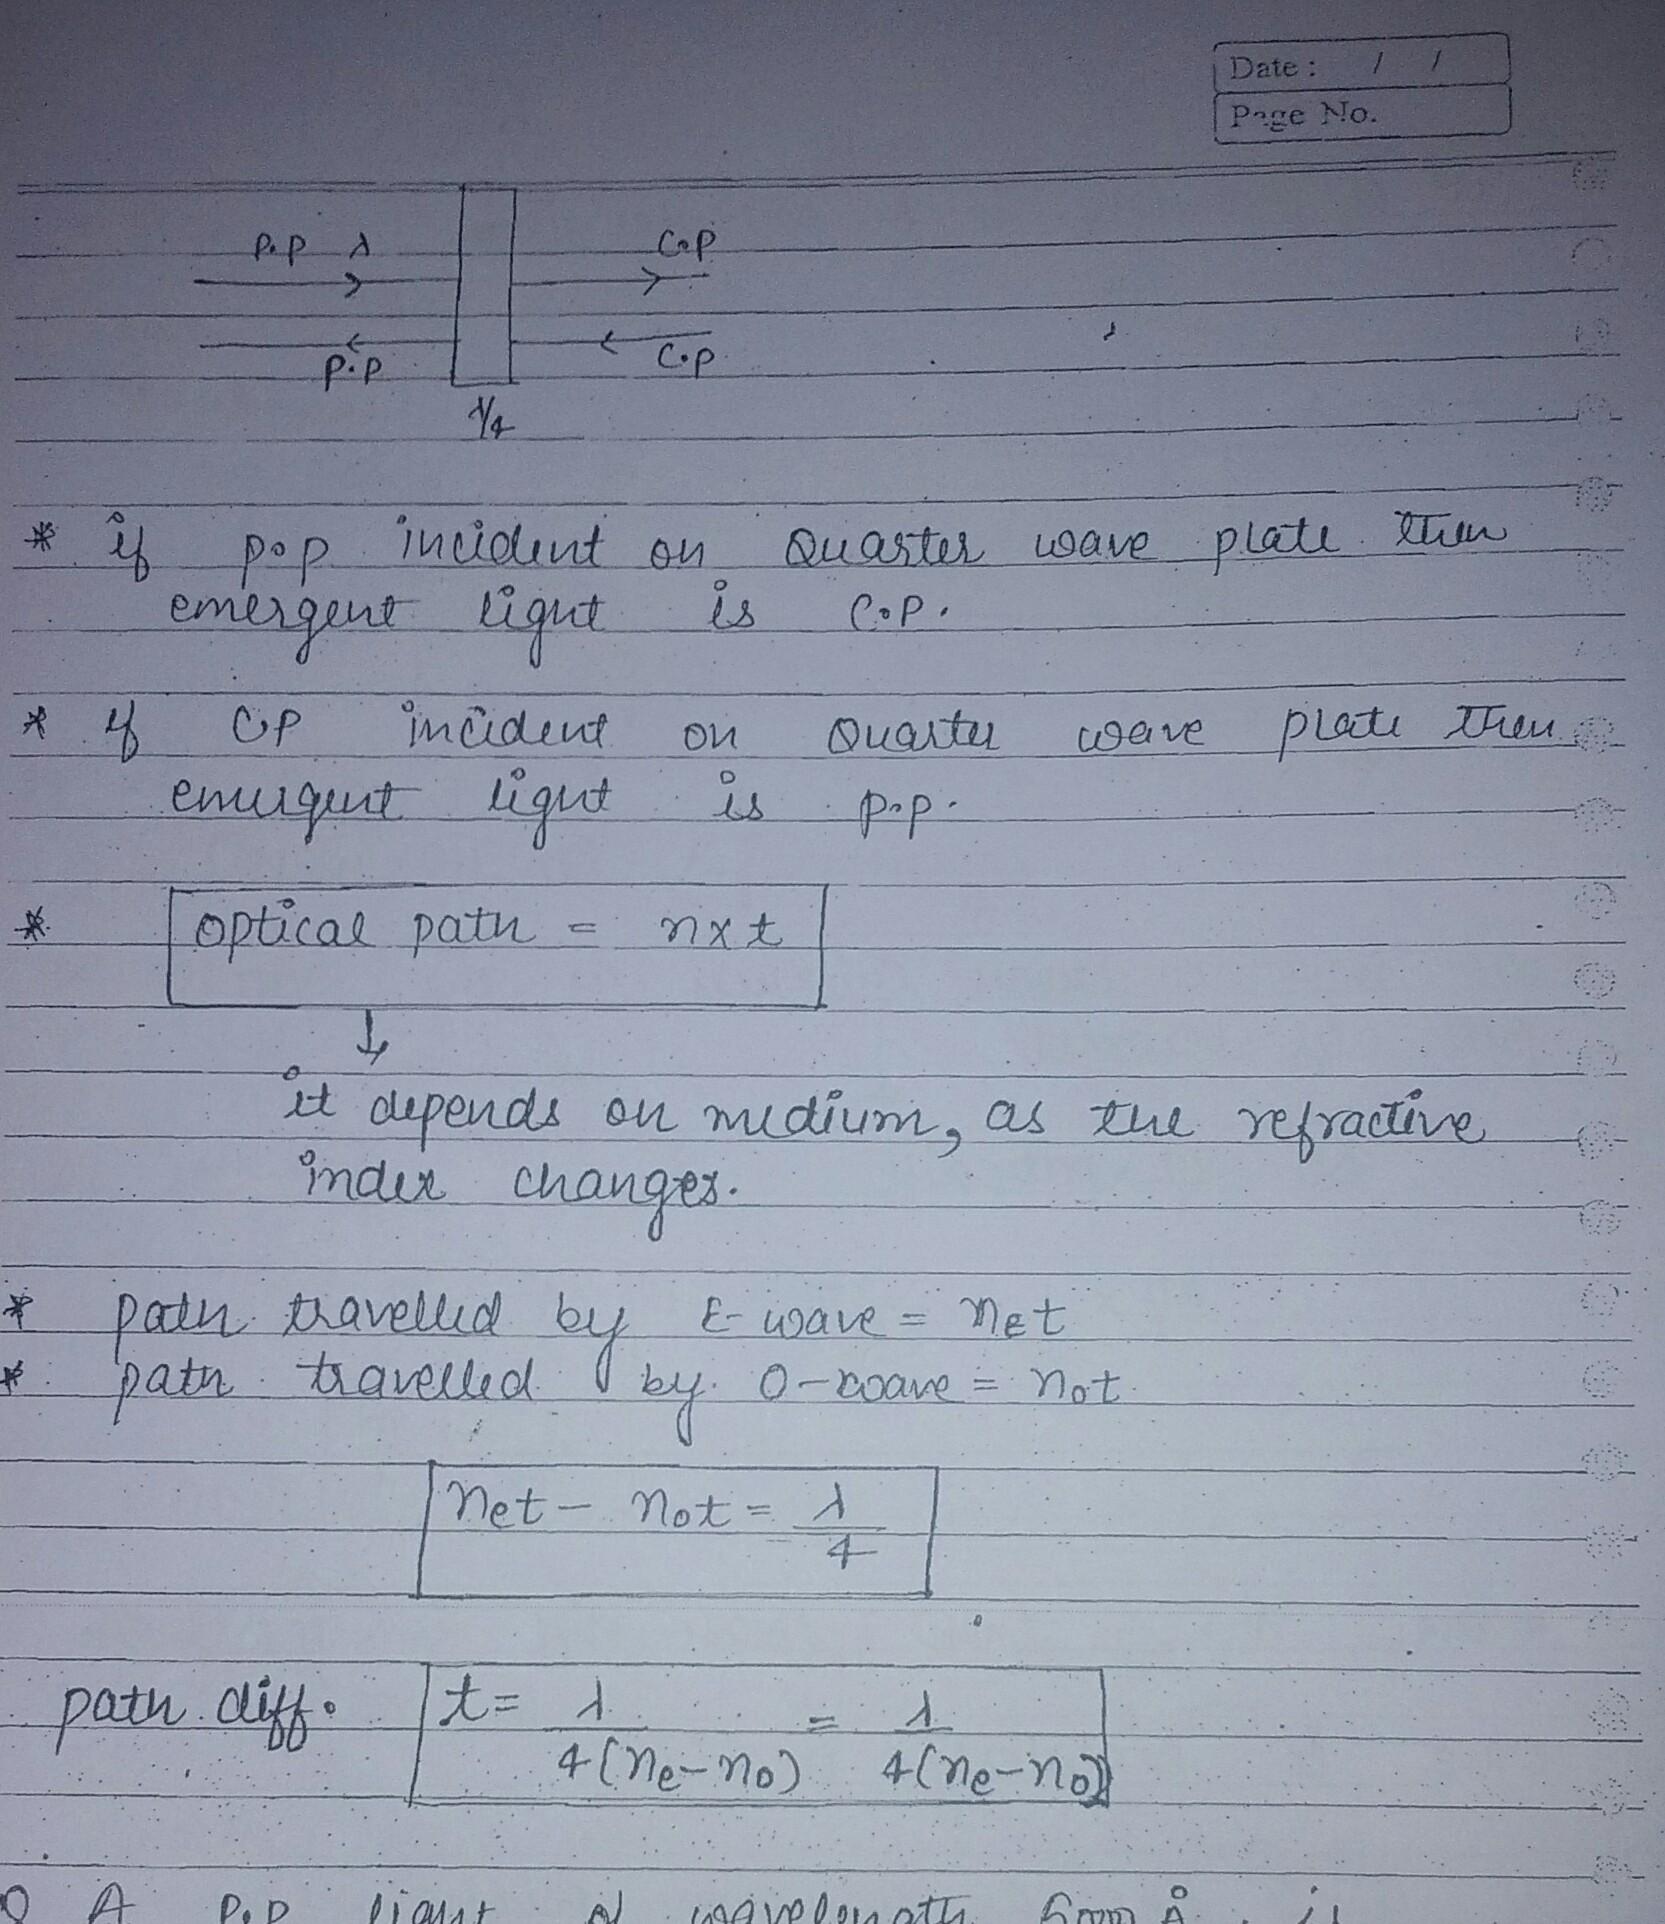 Date : / /
Page No.
P.P λ
C.P
P.P
C.P
λ/4
* if P.P incident on Quarter wave plate then
emergent light is C.P.
* if C.P incident on Quarter wave plate then
emergent light is P.P.
* optical path = n×t
↓
it depends on medium, as the refractive
index changes.
* path travelled by E-wave = net
* path travelled by O-wave = not
net - not = λ/4
path diff. t = λ/4(ne-no) = λ/4(ne-no)
Q A P.P light of wavelength Å is